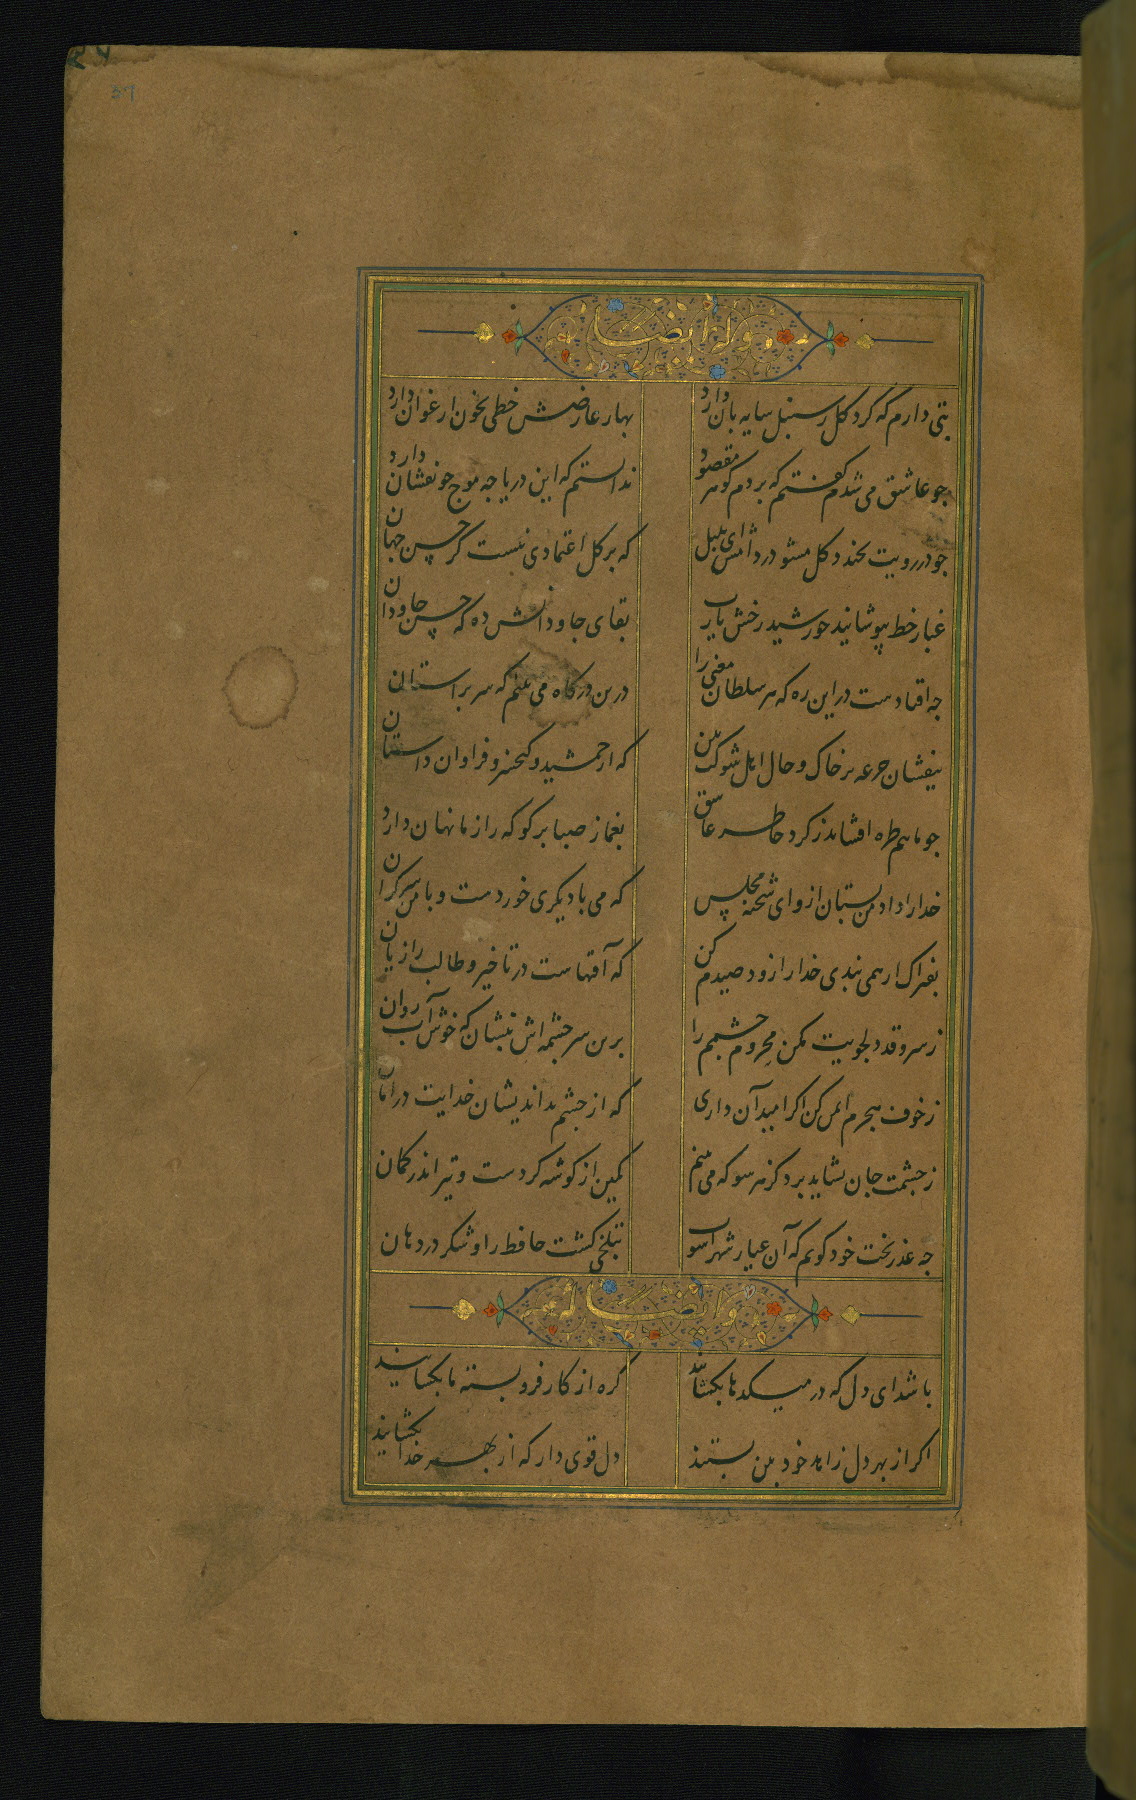 وله ایضا
بتی دارم که کرد کل ز سنبل سایه بان دارد بهار عارضش خطی بخون ارغوان دارد
جو عاشق می شدم کفتم که بردم کوهر مقصود ندانستم که این دریا جه موج خونفشان دارد
جو در رویت بخندد کل مشو در دامش ای بلبل که بر کل اعتمادی نیست کر حسن جهان
غبار خط بپوشانید خورشید رخش یارب بقای جاودانش ده که حسن جاودان
جه افتادست در این ره که هر سلطان معنی را درین درکاه می بینم که سر بر استان
بیفشان جرعه بر خاک و حال اهل شوکت بین که از جمشید و کیخسرو فراوان داستان
جو ماهم طره افشاند ز کرد خاطر عاشق بغماز صبا بر کو که راز ما نهان دارد
خدا را داد من بستان ازو ای شحنه مجلس که می با دیکری خوردست و با من سر کران
بفتراک ار همی بندی خدا را زود صیدم کن که آفتهاست در تاخیر و طالب را زیان
ز سرو قد دلجویت مکن محروم جشمم را برین سر جشمه اش بنشان که خوش آب روان
ز خوف هجرم ایمن کن اکر امید آن داری که از جشم بد اندیشان خدایت در امان
ز جشمت جان نشاید برد کز هر سو که می بینم کمین از کوشه کردست و تیر اندر کمان
جه عذر بخت خود کویم که آن عیار شهراشوب بتلخی کشت حافظ را و شکر در دهان
وله ایضا
باشد ای دل که در میکدها بکشایند کره از کار فرو بسته ما بکشایند
اکر از بهر دل زاهد خود بین بستند دل قوی دار که از بهر خدا بکشایند